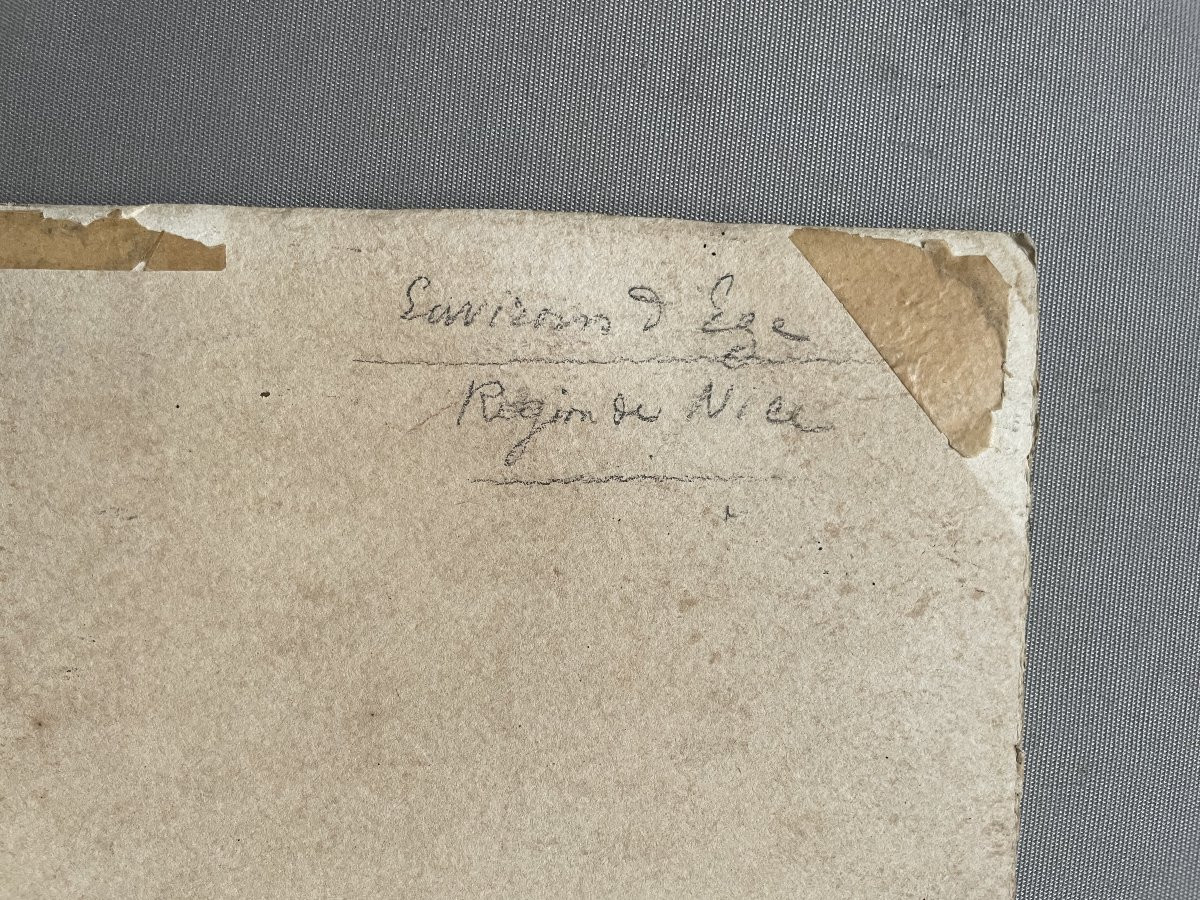 Environs d Eze
Region de Nice